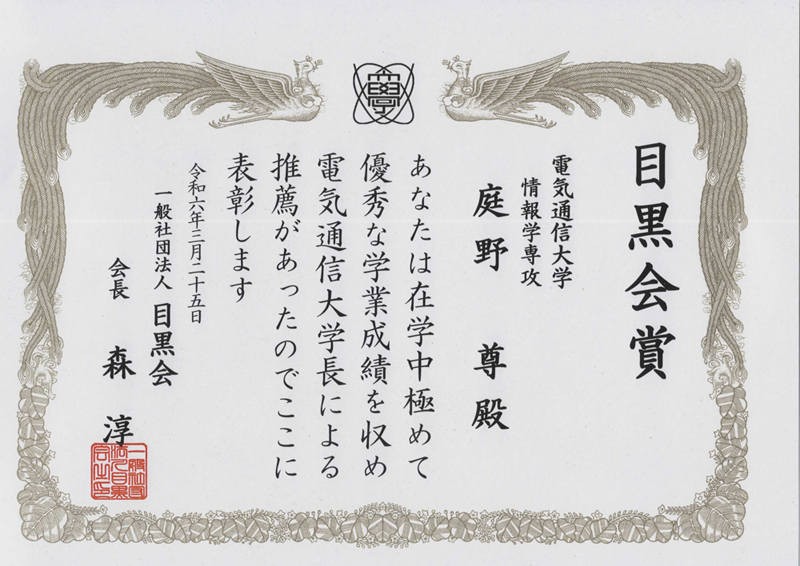 學
目黒会賞
電気通信大学
情報学専攻
庭野 尊殿
あなたは在学中極めて
優秀な学業成績を収め
電気通信大学長による
推薦があったのでここに
表彰します
令和六年三月二十五日
一般社団法人 目黒会
会長 森 淳
一般社団
法人目黒
会之印